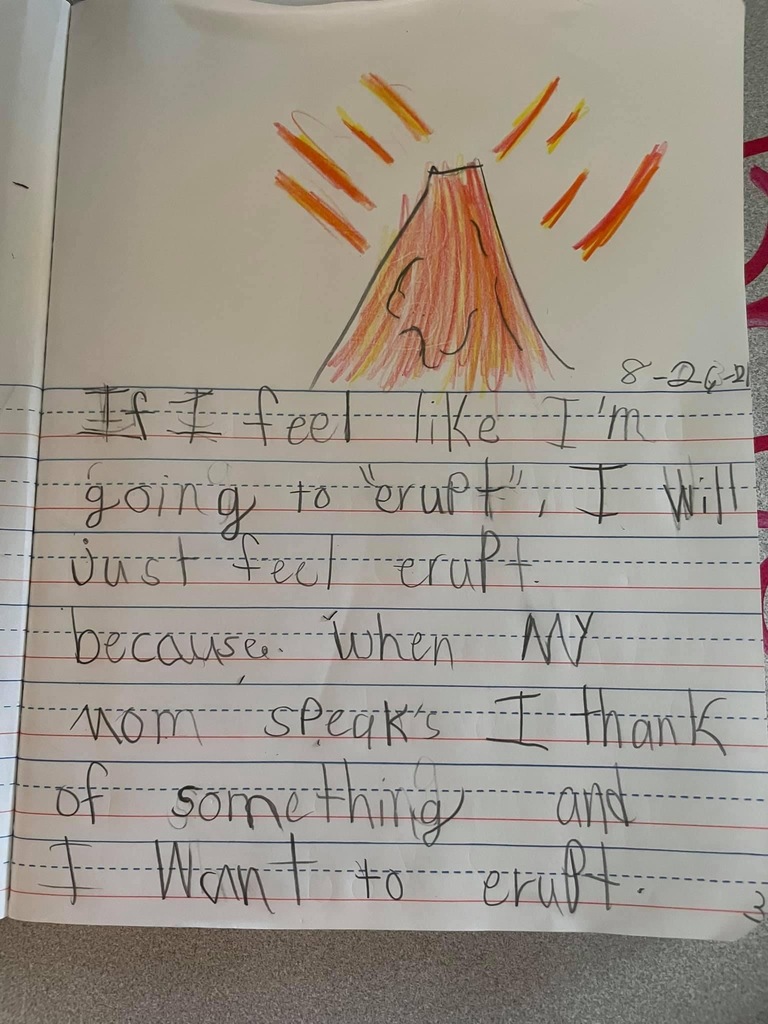 8-26-21
If I feel like I'm
going to "erupt", I will
just feel erupt.
because. when My
mom speak's I thank
of something and
I Want to erupt.
3